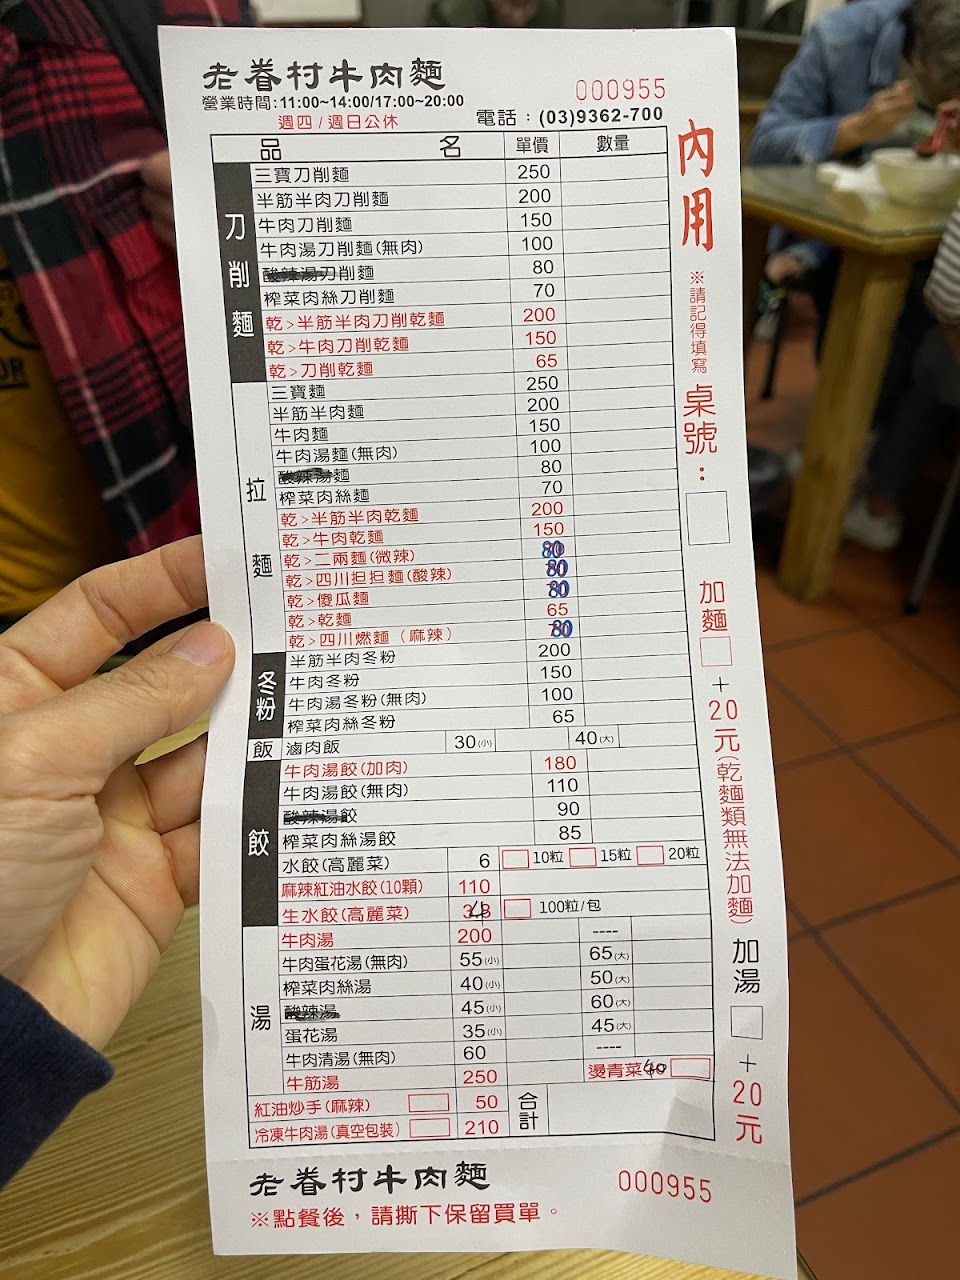 老眷村牛肉麵
000955
營業時間:11:00~14:00/17:00~20:00
週四/週日公休
電話:(03)9362-700
品 名 單價 數量
內用
※請記得填寫
桌號:
刀削麵
三寶刀削麵 250
半筋半肉刀削麵 200
牛肉刀削麵 150
牛肉湯刀削麵(無肉) 100
酸辣湯刀削麵 80
榨菜肉絲刀削麵 70
乾>半筋半肉刀削乾麵 200
乾>牛肉刀削乾麵 150
乾>刀削乾麵 65
拉麵
三寶麵 250
半筋半肉麵 200
牛肉麵 150
牛肉湯麵(無肉) 100
酸辣湯麵 80
榨菜肉絲麵 70
乾>半筋半肉乾麵 200
乾>牛肉乾麵 150
乾>二兩麵(微辣) 80
乾>四川担担麵(酸辣) 80
乾>傻瓜麵 80
乾>乾麵 65
乾>四川燃麵(麻辣) 80
冬粉
半筋半肉冬粉 200
牛肉冬粉 150
牛肉湯冬粉(無肉) 100
榨菜肉絲冬粉 65
飯 滷肉飯 30(小) 40(大)
餃
牛肉湯餃(加肉) 180
牛肉湯餃(無肉) 110
酸辣湯餃 90
榨菜肉絲湯餃 85
水餃(高麗菜) 6 10粒 15粒 20粒
麻辣紅油水餃(10顆) 110
生水餃(高麗菜) 4 100粒/包
湯
牛肉湯 200 ----
牛肉蛋花湯(無肉) 55(小) 65(大)
榨菜肉絲湯 40(小) 50(大)
酸辣湯 45(小) 60(大)
蛋花湯 35(小) 45(大)
牛肉清湯(無肉) 60 ----
牛筋湯 250 燙青菜40
紅油炒手(麻辣) 50
冷凍牛肉湯(真空包裝) 210
合計
加麵 +20元(乾麵類無法加麵)
加湯 +20元
老眷村牛肉麵
000955
※點餐後,請撕下保留買單。